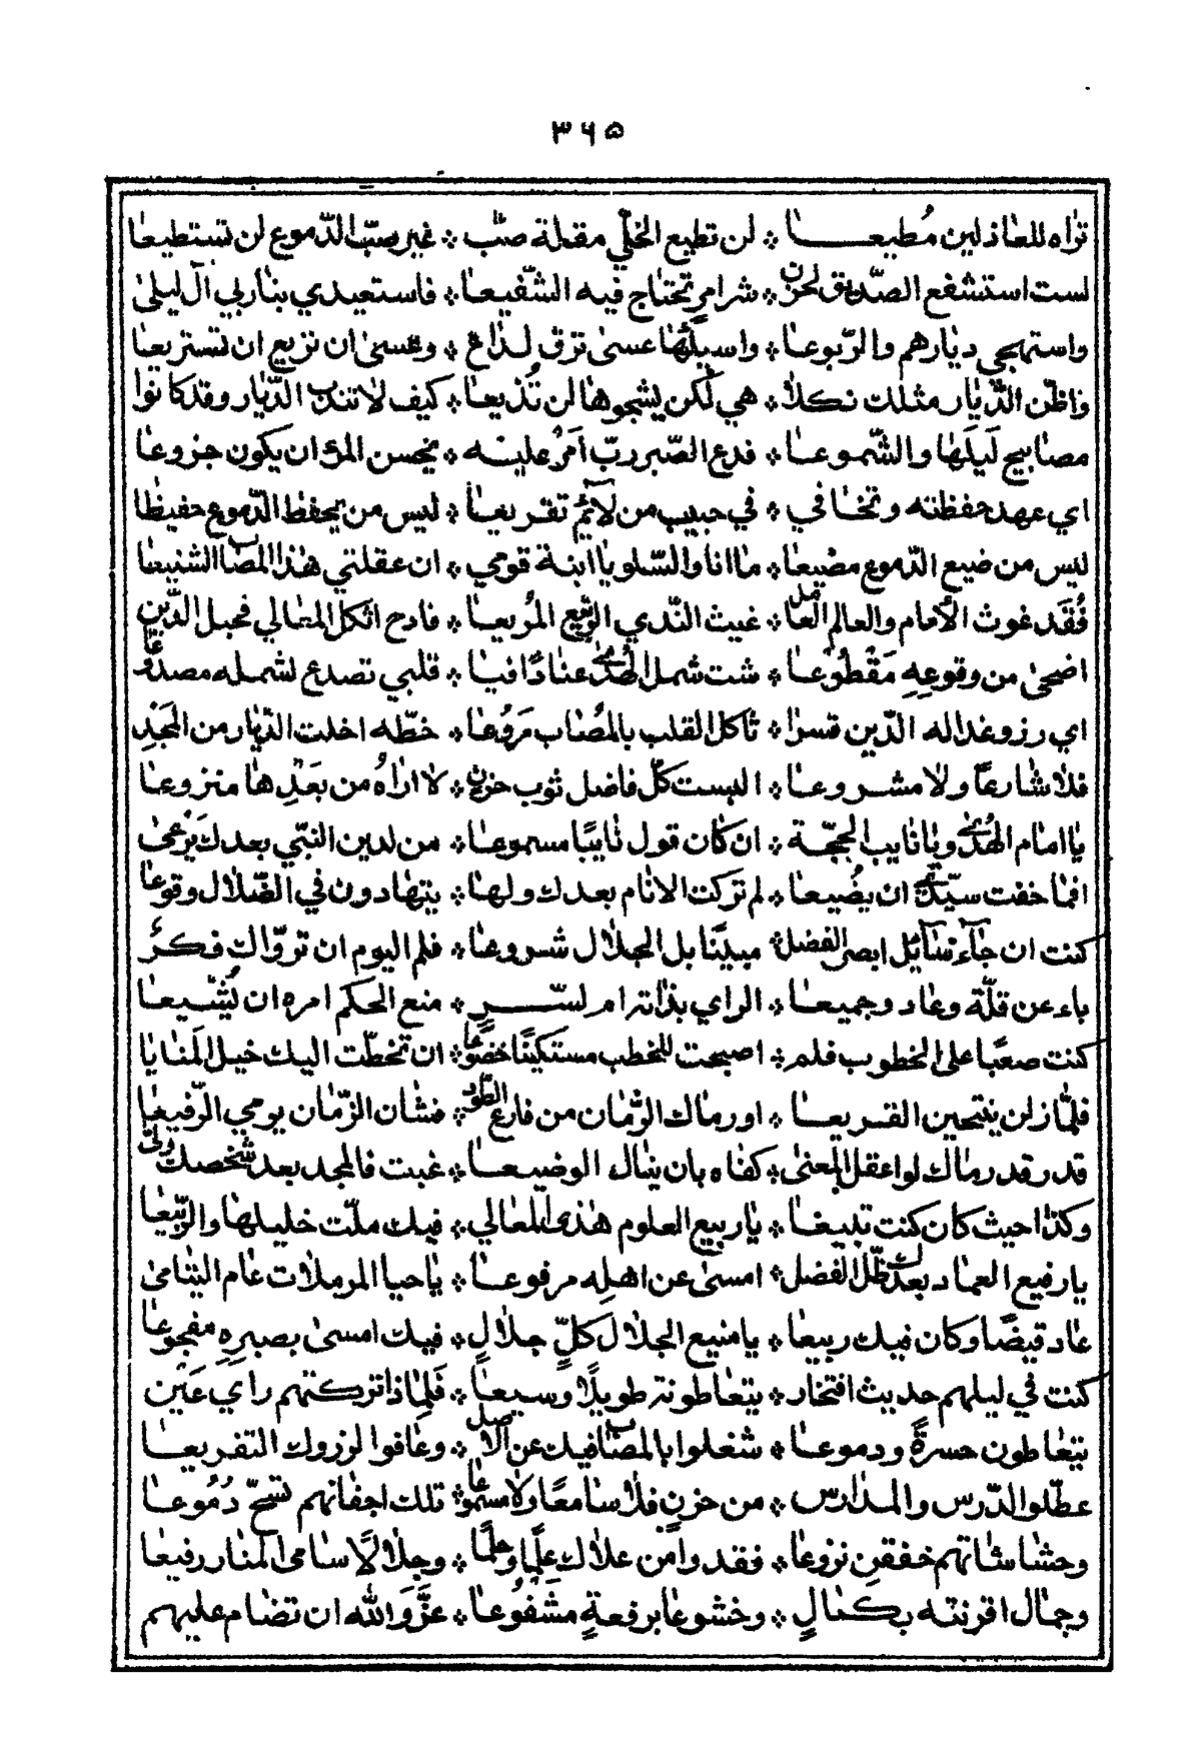 ۳۶۵
تراه للعاذلين مُطيعا * لن تطيع الخلّي مقلة صبّ * غير صبّ الدّموع لن تستطيعا
لست استشفع الصّديق لحزن * شرامرٍ تحتاج فيه الشّفيعا * فاستعيدي بنا ربي آل ليلى
واستهجي ديارهم والرّبوعا * واسبلّها عسى ترق لداع * وعسى ان نزيع ان تستريعا
واظنّ الدّيار مثلك نكلا * هي لكن يشجوها لن تُذيعا * كيف لا تندب الدّيار وقد كانوا
مصابيح ليلها والشّموعا * فدع الصّبر ربّ امرٌ عليه * يحسن المرؤ ان يكون جزوعا
اي عهد حفظته وتخافي * في حبيب من لآئم تقريعا * ليس من يحفظ الدّموع حفيظا
ليس من ضيع الدّموع مضيعا * ما انا والسّلو يا ابنة قومي * ان عقلتي هذا المصاب الشنيعا
فُقد غوث الأمام والعالم العامل * غيث النّدي الرّبيع المُريعا * فادح اثكل المعالي فحبل الدّين
اضحى من وقوعهِ مَقْطوُعا * شت شمل الهدى عنادًا فيا * قلبي تصدع لشمله مصدوعا
اي رزو غدا له الدّين قسرا * ثاكل القلب بالمُصاب مَروُعا * خطّه اخلت الدّيار من المَجْدِ
فلا شارعًا ولا مشروعا * البست كلّ فاضل ثوب حزنٍ * لا اراهُ من بَعْدِها منزوعا
يا امام الهُدى ويا نايب الحجّة * ان كان قول نايبًا مسموعا * من لدين النبّي بعدك يَرْعى
افما خفت سيّدي ان يضُيعا * لم تركت الانام بعدك ولها * يتهادون في الضّلال وقوعا
كنت ان جآء سآئل ابصر الفضل * مبيّنا بل الجلال شروعا * فلم اليوم ان تروّاك فكرٌ
باء عن قلّة وعاد وجميعا * الراي بذا ترام لسّرٍ * منع الحكم امره ان يُشيعا
كنت صعبًا على الخطوب فلم * اصبحت للخطب مستكينًا خضوعا * ان تخطّت اليك خيل المَنايا
فلمّا زلن ينتحين القريعا * اورماك الزّمان من فارع الطّود * فشان الزّمان يرمي الرّفيعا
قدر قد رماك لو اعقل المعنى * كفاه بان ينال الوضيعا * غبت فالمجد بعد شخصك ولّى
وكذا حيث كان كنت تبيعا * يا ربيع العلوم هذى المعالي * فيك ملّت خليلها والرّبيعا
يا رفيع العماد بعدك ظلّ الفضل * امسى عن اهله مرفوعا * يا حيا المرملات عام اليتامى
عاد قيضًا وكان فيك ربيعا * يا منيع الجلال كلّ جلالٍ * فيك امسى بصبرهِ مفجوعا
كنت في ليلهم حديث افتخار * يتعاطونه طويلًا وسيعا * فَلِماذا تركتهم راي عَيْن
يتعاطون حسرةً ودموعا * شغلوا بالمصاب فيك عن الاصل * وعافوا لزروك التفريعا
عطّلوا الدّرس والمدارس * من حزنٍ فلا سامعًا ولا مسموعا * تلك اجفانهم تسّحّ دُمُوعا
وحشاشاتهم خفقن نزوعا * فقد وا من علاك علمًا وحلمًا * وجلالًا سامى المنار رفيعا
وجمال اقرنته بكمالٍ * وخشوعا برفعةٍ مشفُوعا * عزَّ والله ان تضام عليهم